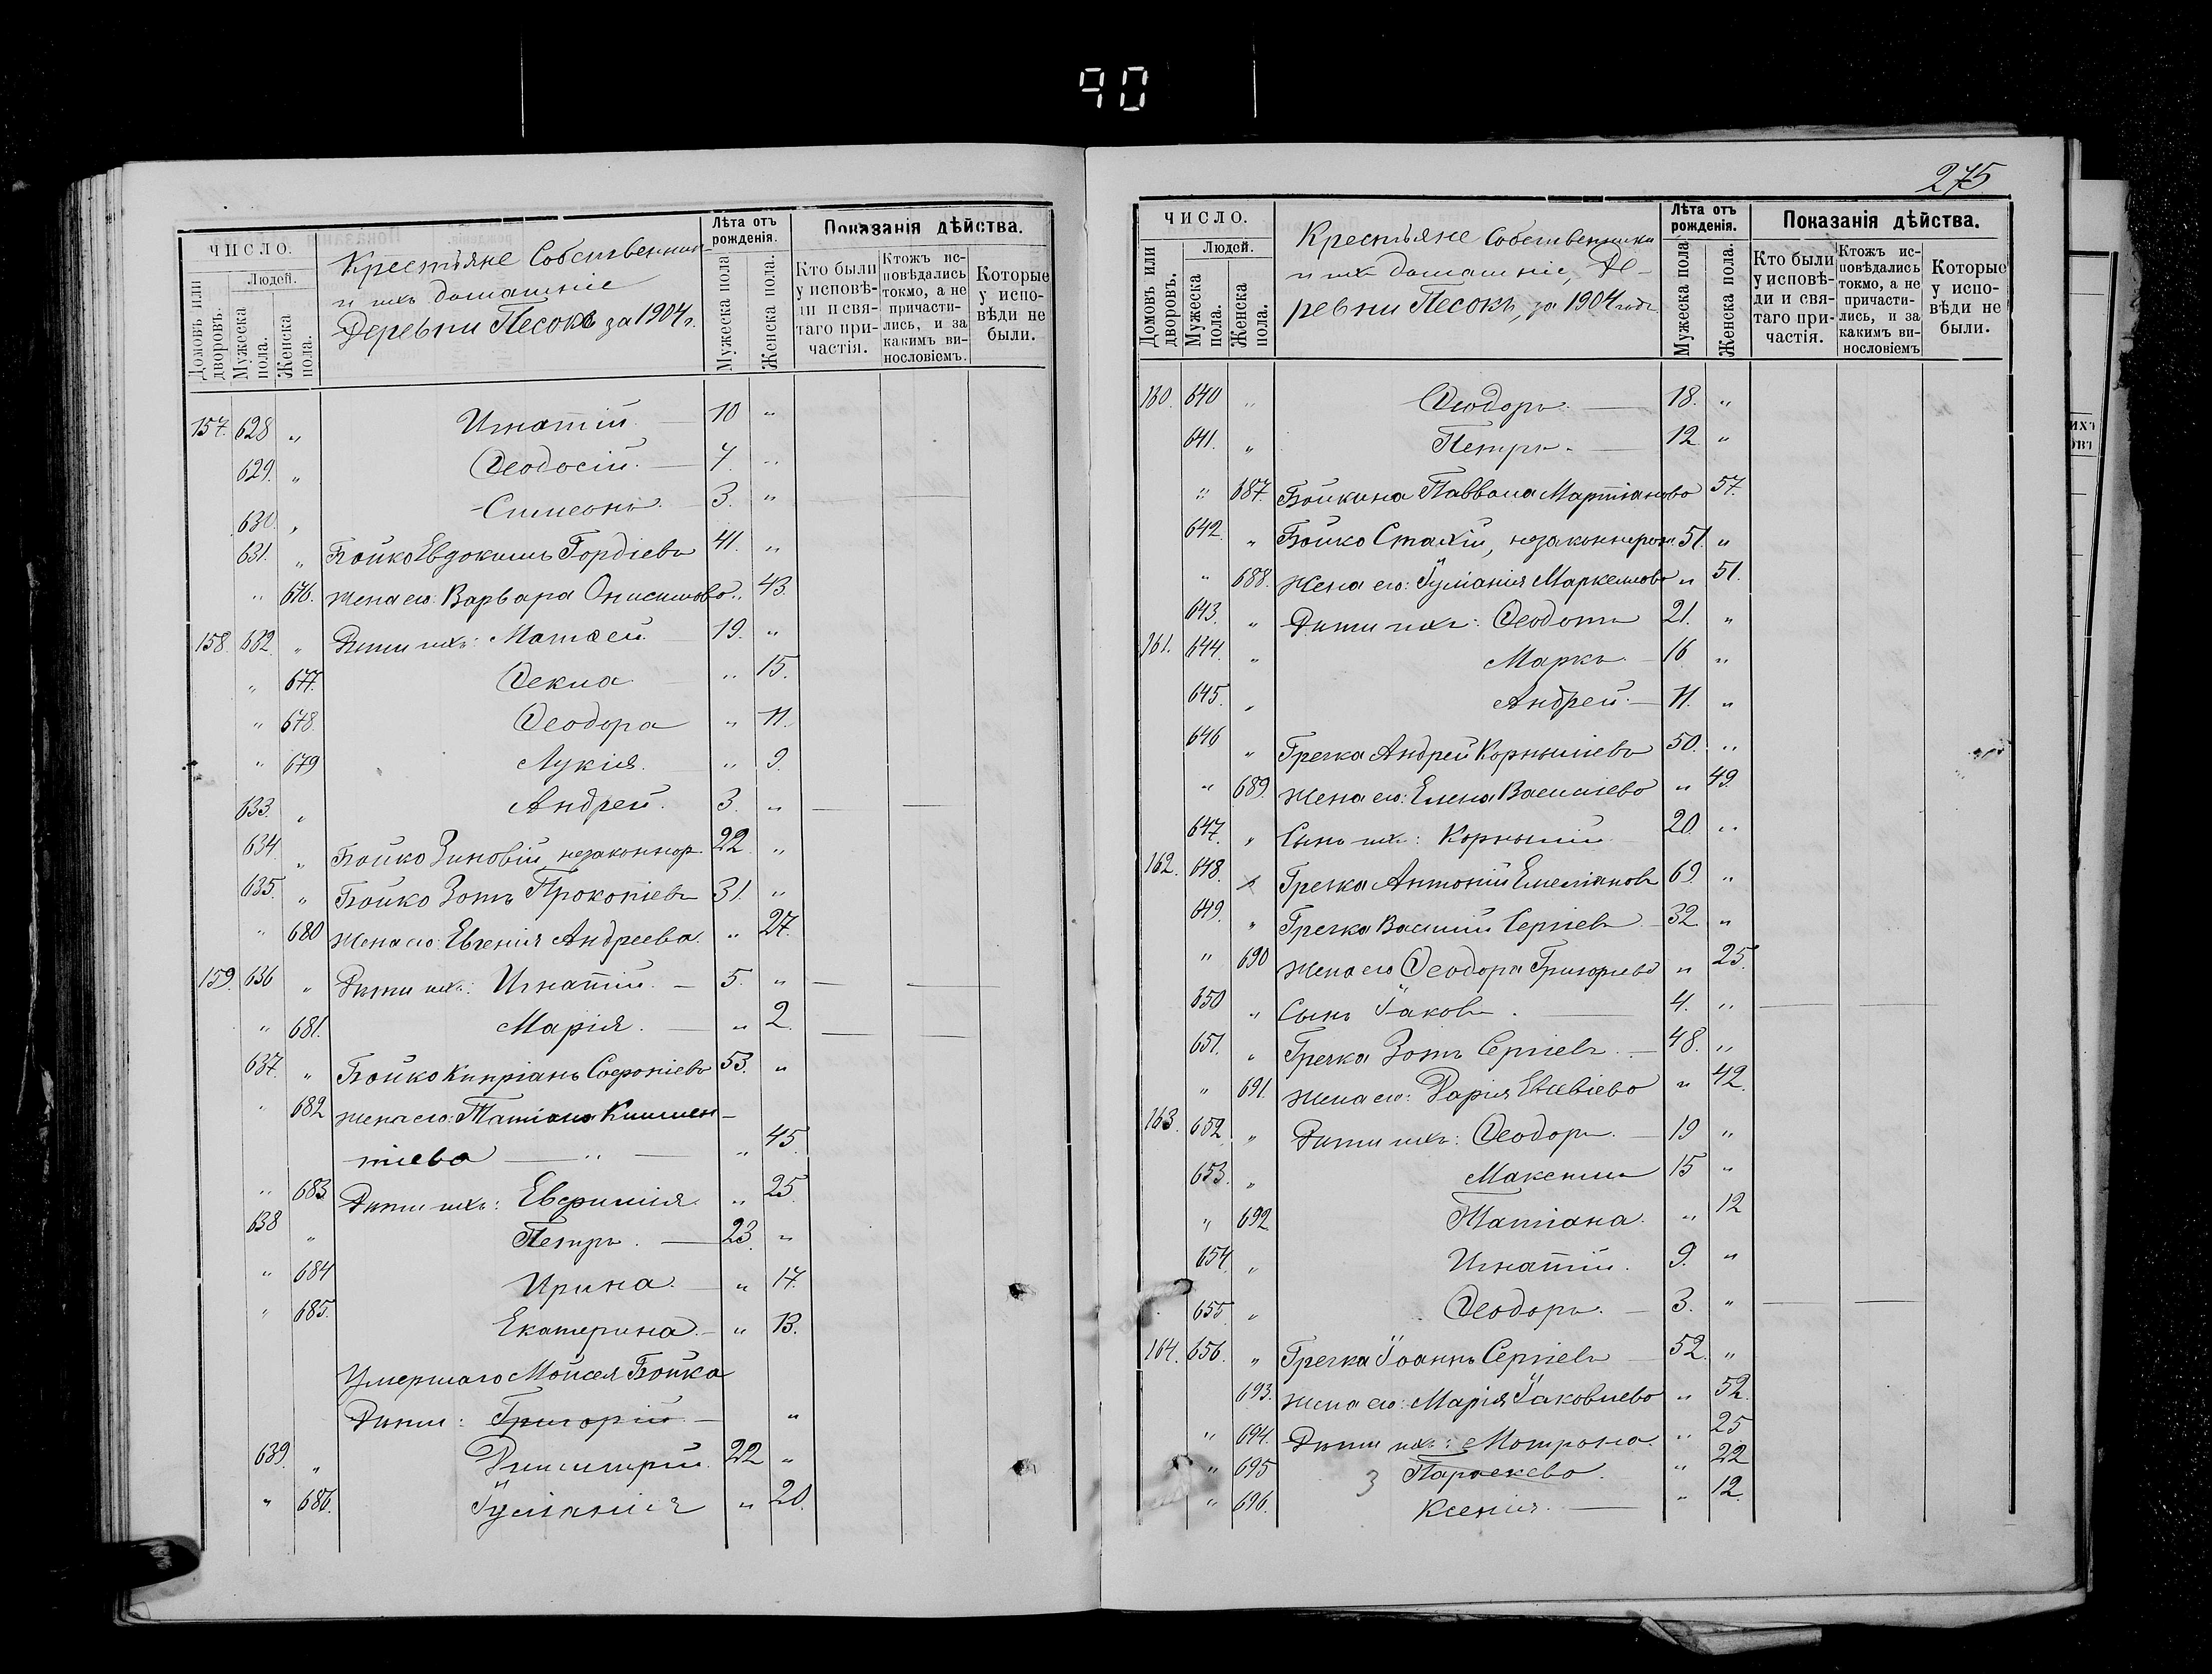 90
ЧИСЛО.
Людей.
Домовъ или дворовъ.
Мужеска пола.
Женска пола.
Крестьяне Собственники
и ихъ домашніе
Деревни Песокъ за 1904 г.
Лѣта отъ рожденія.
Мужеска пола
Женска пола.
Показанія дѣйства.
Кто были у исповѣ-ди и свя-таго при-частія.
Ктожъ ис-повѣдались токмо, а не причасти-лись, и за какимъ ви-нословіемъ.
Которые у испо-вѣди не были.
157. 628 „ Игнатій — 10 „
629. „ Ѳеодосій. — 7. „
630. „ Симеонъ. 3. „
631. „ Бойко Евдокимъ Гордіевъ 41. „
„ 676. Жена его: Варвара Онисимова „ 43.
158. 632. „ Дѣти ихъ: Матѳей 19. „
„ 677. Ѳекла „ 15.
„ 678. Ѳеодора „ 11.
„ 679 Лукія. „ 9.
633. „ Андрей. 3. „ — —
634. „ Бойко Зиновій незаконнор. 22 „
635. „ Бойко Зотъ Прокопіевъ 31. „
„ 680 Жена его: Евгенія Андреева. „ 27.
159. 636 „ Дѣти ихъ: Игнатій. — 5. „ — —
„ 681. Марія. — „ 2. — —
637. „ Бойко Кипріанъ Софроніевъ 53. „
„ 682 Жена его: Татіана Климен-
тіева — „ — „ 45.
„ 683 Дѣти ихъ: Евфимія. „ 25.
638 „ Петръ. — 23. „
„ 684 Ирина. — „ 17.
„ 685. Екатерина. — „ 13.
Умершаго Мойсея Бойка
Дѣти: Григорій — „
639. „ Димитрій. 22 „
„ 686. Іуліанія „ 20.
275
ЧИСЛО.
Людей.
Домовъ или дворовъ.
Мужеска пола.
Женска пола.
Крестьяне Собственники
и ихъ домашніе, Де-
ревни Песокъ, за 1904 годъ.
Лѣта отъ рожденія.
Мужеска пола
Женска пола.
Показанія дѣйства.
Кто были у исповѣ-ди и свя-таго при-частія.
Ктожъ ис-повѣдались токмо, а не причасти-лись, и за какимъ ви-нословіемъ
Которые у испо-вѣди не были.
160. 640 „ Ѳеодоръ. — 18. „
641. „ Петръ. — 12. „
„ 687. Бойкина Паввла Мартіанова 57.
642. „ Бойко Стахій, незаконнорож. 51. „
„ 688. Жена его: Іуліанія Маркеллова „ 51.
643. „ Дѣти ихъ: Ѳеодотъ 21. „
161. 644. „ Маркъ. — 16 „
645. „ Андрей. — 11. „
646 „ Гречка Андрей Корниліевъ 50. „
„ 689. Жена его: Елена Василіева „ 49.
647. „ Сынъ ихъ: Корнилій 20. „
162. 648. „ Гречка Антоній Емеліановъ 69. „
649. „ Гречка Василій Сергіевъ — 32. „
„ 690 Жена его Ѳеодора Григорьева „ 25.
650 „ Сынъ Іаковъ. — 4. „ — —
651. „ Гречка Зотъ Сергіевъ — 48. „
„ 691. Жена его: Дарія Евсевіева „ 42.
163. 652. „ Дѣти ихъ: Ѳеодоръ. — 19 „
653. „ Максимъ 15 „
„ 692 Татіана. „ 12
654. „ Игнатій. 9. „
655. „ Ѳеодоръ. — 3. „ — —
164. 656. „ Гречка Іоаннъ Сергіевъ — 52. „
693. Жена его: Марія Іаковлева „ 52.
„ 694. Дѣти ихъ: Мотрона. „ 25
„ 695 3 Параскева. „ 22
„ 696. Ксенія. — „ 12.